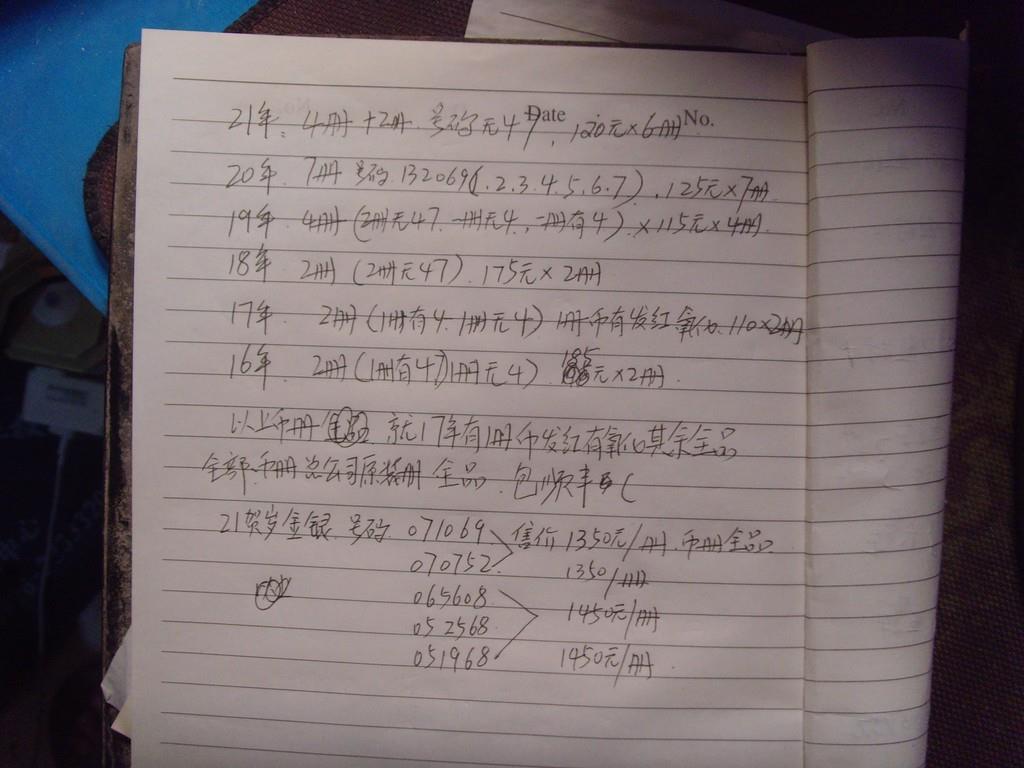 Date No.
21年: 4册+2册. 号码无47, 120元×6册
20年. 7册 号码 132069(1.2.3.4.5.6.7). 125元×7册
19年 4册(2册无47. 一册无4, 一册有4). ×115元×4册.
18年 2册(2册无47). 175元×2册
17年. 2册(1册有4. 1册无4) 1册币有发红氧化. 110×2册
16年. 2册(1册有4)1册无4) 元×2册.
以上币册 就17年有1册币发红有氧化其余全品
全部币册总公司原装册 全品. 包顺丰
21贺岁金银 号码 071069 售价1350元/册. 币册全品
070752. 1350/册
065608 1450元/册
052568
051968 1450元/册.